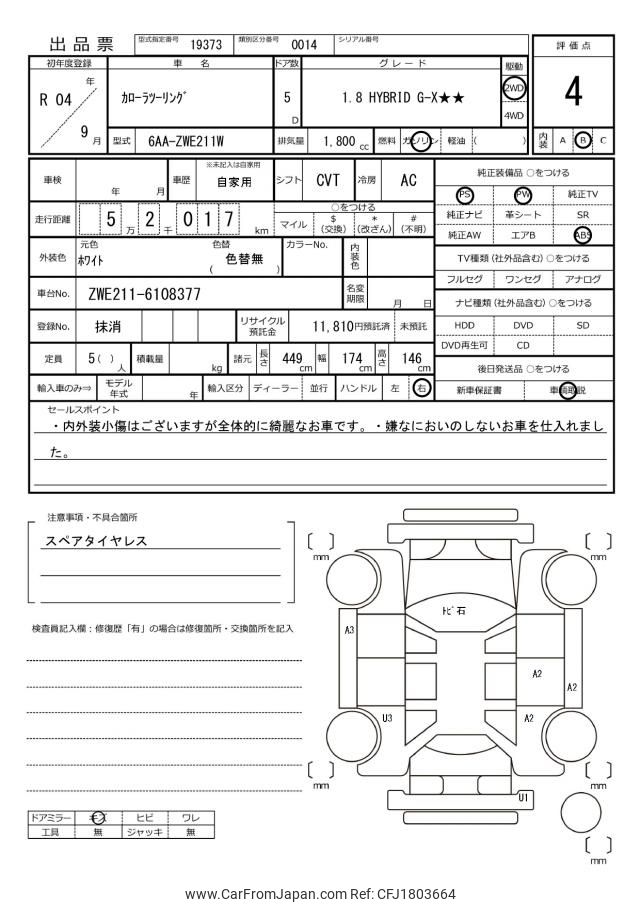 出品票 型式指定番号 19373 類別区分番号 0014 シリアル番号
評価点
4
内装 A B C
初年度登録 車名 ドア数 グレード 駆動
R 04 年 9 月
カローラツーリング 5 D 1.8 HYBRID G-X★★ 2WD
4WD
型式 6AA-ZWE211W 排気量 1,800 cc 燃料 ガソリン 軽油 ( )
車検 年 月 車歴 ※未記入は自家用 自家用 シフト CVT 冷房 AC
走行距離 5 2 0 1 7 万 千 km
○をつける
マイル $(交換) *(改ざん) #(不明)
外装色 元色 ホワイト 色替 ( 色替無 ) カラーNo. 内装色
車台No. ZWE211-6108377 名変期限 月 日
登録No. 抹消 リサイクル預託金 11,810円預託済 未預託
定員 5 ( ) 人 積載量 kg 諸元 長さ 449 cm 幅 174 cm 高さ 146 cm
輸入車のみ⇒ モデル年式 年 輸入区分 ディーラー 並行 ハンドル 左 右
純正装備品 ○をつける
PS PW 純正TV
純正ナビ 革シート SR
純正AW エアB ABS
TV種類 (社外品含む) ○をつける
フルセグ ワンセグ アナログ
ナビ種類 (社外品含む) ○をつける
HDD DVD SD
DVD再生可 CD
後日発送品 ○をつける
新車保証書 車輌取説
セールスポイント
・内外装小傷はございますが全体的に綺麗なお車です。・嫌なにおいのしないお車を仕入れまし
た。
注意事項・不具合箇所
スペアタイヤレス
検査員記入欄：修復歴「有」の場合は修復箇所・交換箇所を記入
ドアミラー キズ ヒビ ワレ
工具 無 ジャッキ 無
mm
mm
トビ石
A3
A2
A2
U3
A2
mm
mm
U1
mm
www.CarFromJapan.com Ref: CFJ1803664